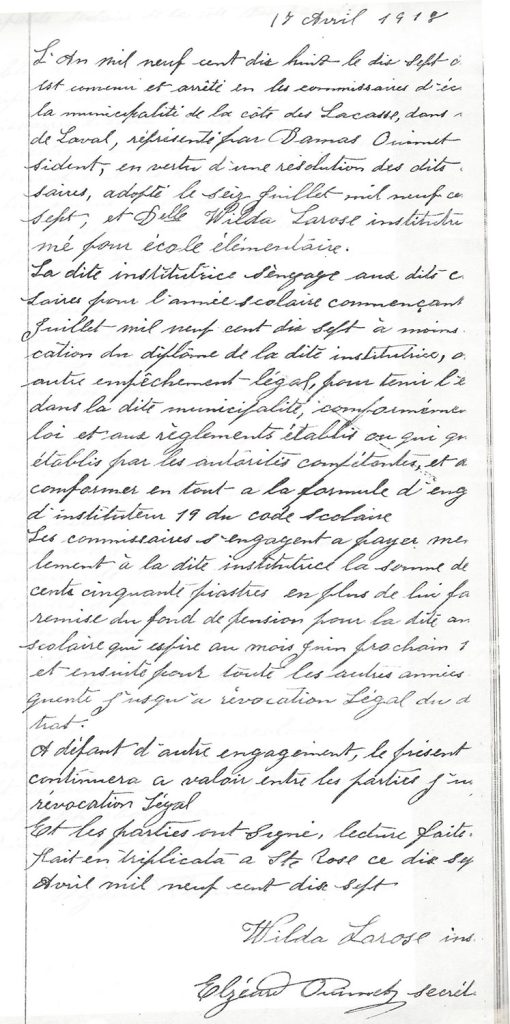 17 Avril 1918
L'An mil neuf cent dix huit le dix sept a
est convenu et arrêté en les commissaires d'éc
la municipalité de la côte des Lacasse, dans
de Laval, réprésenté par Damas Ouimet
sident, en vertu d'une résolution des dits
saires, adopté le seiz Juillet mil neuf ce
sept, et Delle Wilda Larose institutri
mé pour école élémentaire.
La dite institutrice s'engage aux dits c
saires pour l'année scolaire commençant
Juillet mil neuf cent dix sept à moins
cation du diplôme de la dite institutrice, o
autre empêchement légal, pour tenir l'é
dans la dite municipalité, conformémen
loi et aux règlements établis ou qui qu
établis par les autorités compétantes, et a
conformer en tout a la formule d'eng
d'instituteur 19 du code scolaire
Les commissaires s'engagent a payer me
lement à la dite institutrice la somme de
cents cinquante piastres en plus de lui fa
remise du fond de pension pour la dite an
scolaire qui expire au mois Juin prochain 1
et ensuite pour toute les autres années
quente j'usqu'a révocation Légal du d
trat.
A défaut d'autre engagement, le présent
continuera a valoir entre les parties j'u
révocation Légal
Est les parties ont signé, lecture faite.
Fait en triplicata a Ste Rose ce dix sep
Avril mil neuf cent dix sept
Wilda Larose ins
Elzéard Ouimet secrét